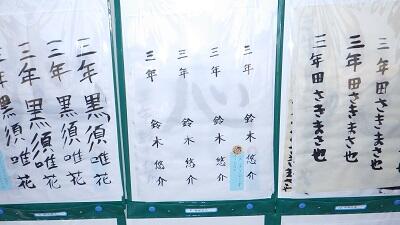 三年 黒須唯花
三年 黒須唯花
三年 黒須唯花
三年 黒須唯花
三年 鈴木悠介
三年 鈴木悠介
三年 鈴木悠介
三年 鈴木悠介
三年 田さきまさ也
三年 田さきまさ也
三年 田さきまさ也